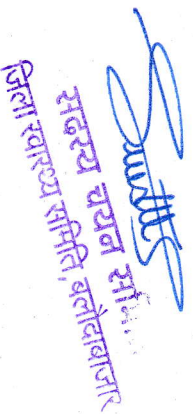 सदस्य चयन
जिला स्वास्थ्य समिति, बलौदाबाजार